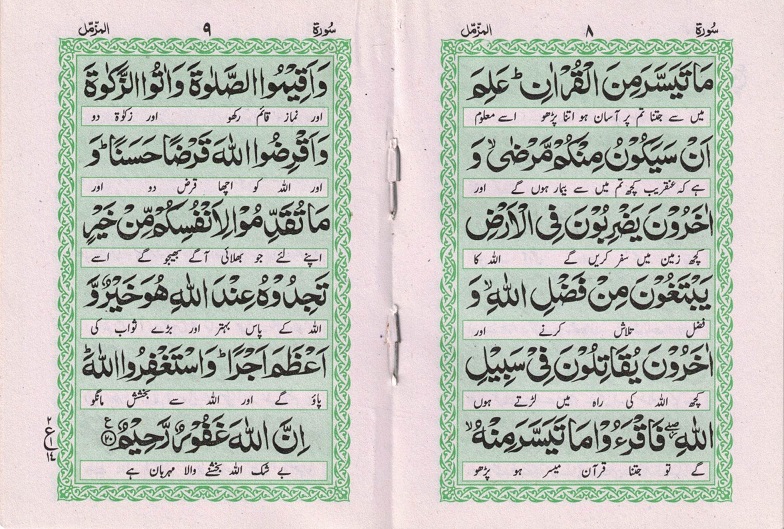 سُورَة ٨ المزّمّل
مَا تَيَسَّرَ مِنَ الْقُرْاٰنِ ؕ عَلِمَ
میں سے جتنا تم پر آسان ہو اتنا پڑھو اسے معلوم
اَنْ سَيَكُوْنُ مِنْكُمْ مَّرْضٰى ۙ وَ
ہے کہ عنقریب کچھ تم میں سے بیمار ہوں گے اور
اٰخَرُوْنَ يَضْرِبُوْنَ فِى الْاَرْضِ
کچھ زمین میں سفر کریں گے اللہ کا
يَبْتَغُوْنَ مِنْ فَضْلِ اللّٰهِ ۙ وَ
فضل تلاش کرنے اور
اٰخَرُوْنَ يُقَاتِلُوْنَ فِىْ سَبِيْلِ
کچھ اللہ کی راہ میں لڑتے ہوں
اللّٰهِ ۖ فَاقْرَءُوْا مَا تَيَسَّرَ مِنْهُ ۙ
گے تو جتنا قرآن میسر ہو پڑھو
سُورَة ٩ المزّمّل
وَاَقِيْمُوا الصَّلٰوةَ وَاٰتُوا الزَّكٰوةَ
اور نماز قائم رکھو اور زکوٰۃ دو
وَاَقْرِضُوا اللّٰهَ قَرْضًا حَسَنًا ؕ وَ
اور اللہ کو اچھا قرض دو اور
مَا تُقَدِّمُوْا لِاَنْفُسِكُمْ مِّنْ خَيْرٍ
اپنے لئے جو بھلائی آگے بھیجو گے اسے
تَجِدُوْهُ عِنْدَ اللّٰهِ هُوَ خَيْرًا وَّ
اللہ کے پاس بہتر اور بڑے ثواب کی
اَعْظَمَ اَجْرًا ؕ وَاسْتَغْفِرُوا اللّٰهَ ؕ
پاؤ گے اور اللہ سے بخشش مانگو
اِنَّ اللّٰهَ غَفُوْرٌ رَّحِيْمٌ ﴿٢٠﴾ ع
بے شک اللہ بخشنے والا مہربان ہے
٢
ع
١
١٤